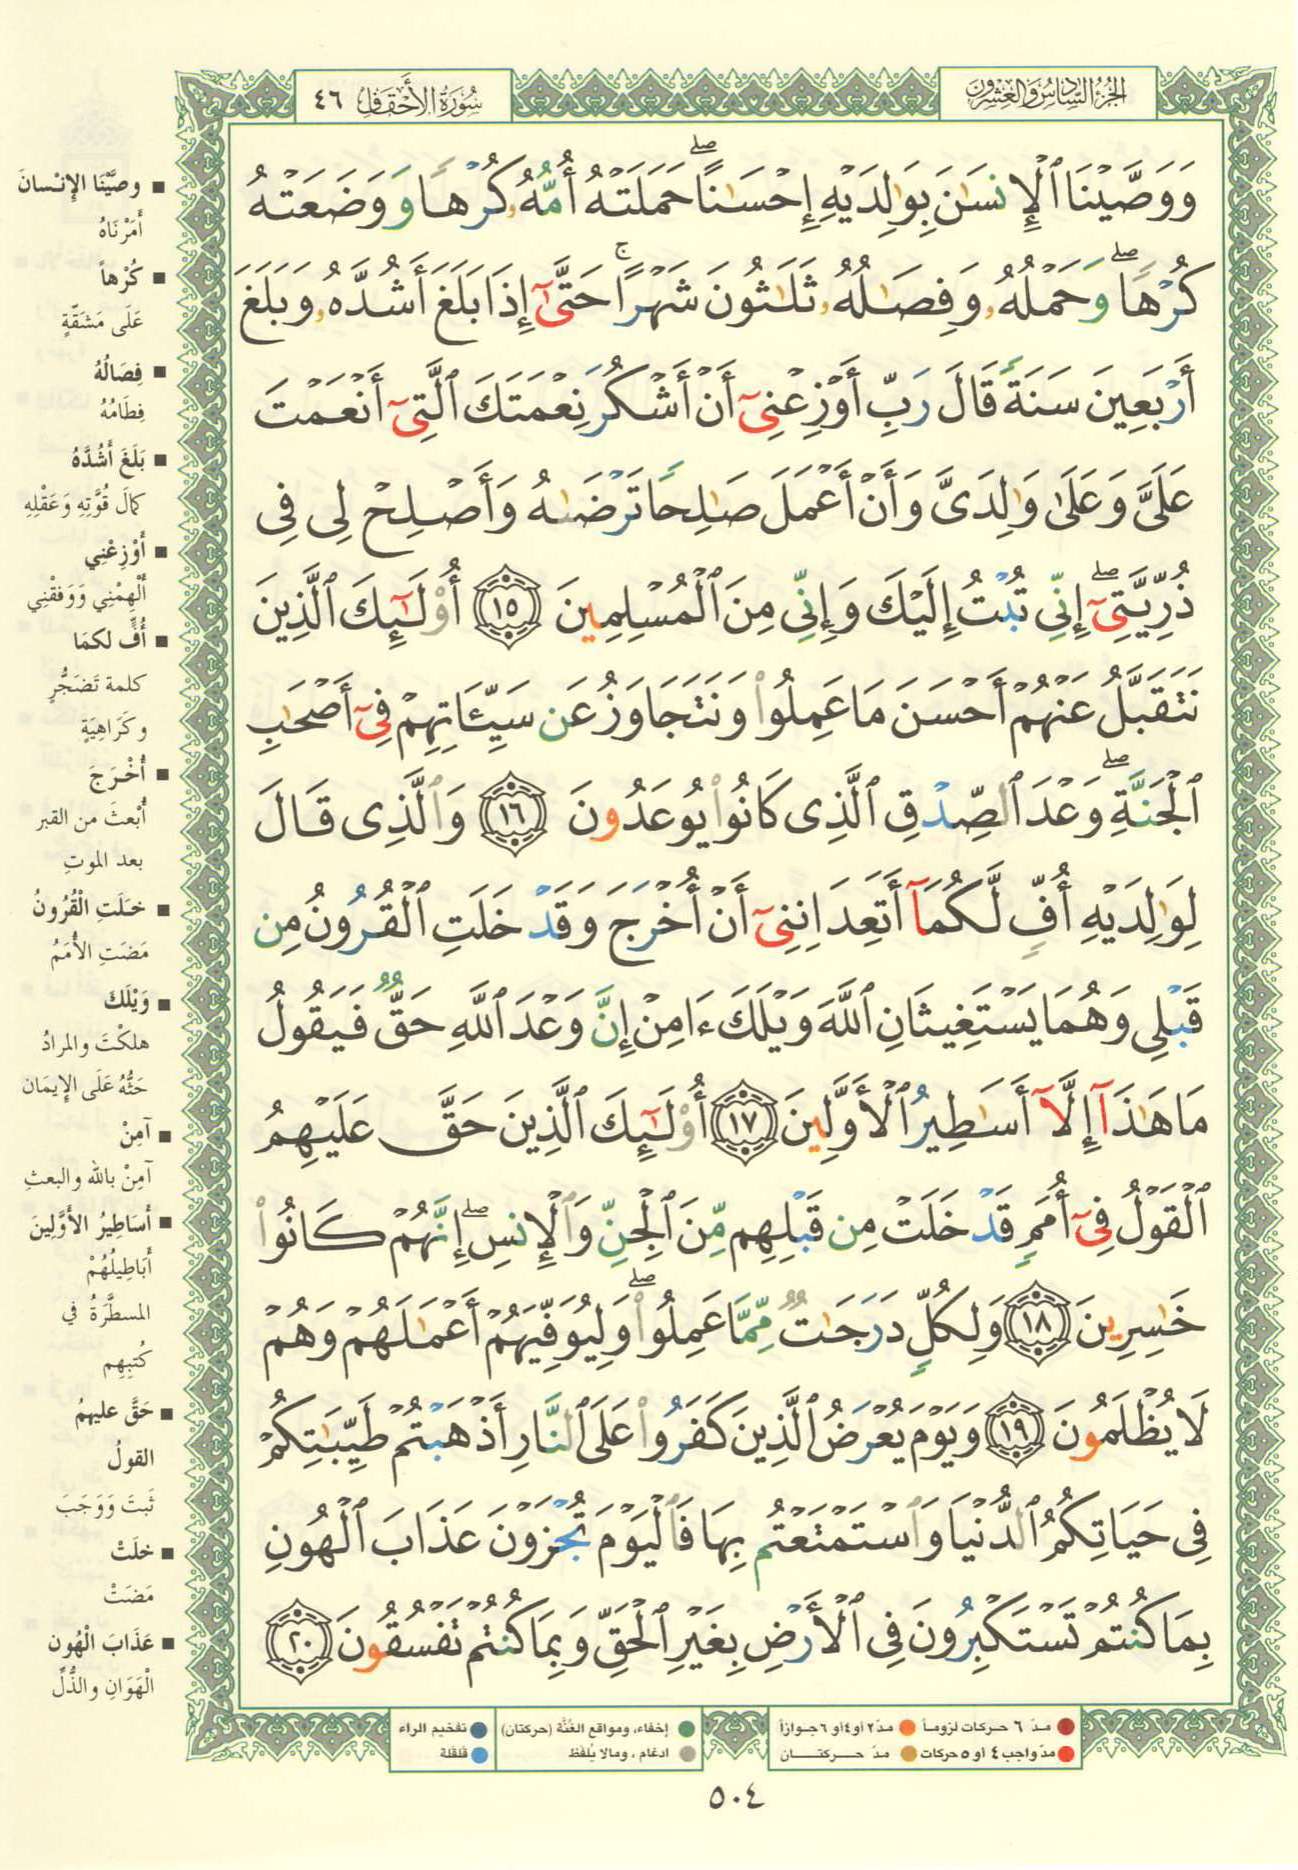 الجزء السادس والعشرون
سورة الأحقاف ٤٦
وَوَصَّيْنَا ٱلْإِنسَٰنَ بِوَٰلِدَيْهِ إِحْسَٰنًا ۖ حَمَلَتْهُ أُمُّهُۥ كُرْهًا وَوَضَعَتْهُ
كُرْهًا ۖ وَحَمْلُهُۥ وَفِصَٰلُهُۥ ثَلَٰثُونَ شَهْرًا ۚ حَتَّىٰٓ إِذَا بَلَغَ أَشُدَّهُۥ وَبَلَغَ
أَرْبَعِينَ سَنَةً قَالَ رَبِّ أَوْزِعْنِىٓ أَنْ أَشْكُرَ نِعْمَتَكَ ٱلَّتِىٓ أَنْعَمْتَ
عَلَىَّ وَعَلَىٰ وَٰلِدَىَّ وَأَنْ أَعْمَلَ صَٰلِحًا تَرْضَىٰهُ وَأَصْلِحْ لِى فِى
ذُرِّيَّتِىٓ ۖ إِنِّى تُبْتُ إِلَيْكَ وَإِنِّى مِنَ ٱلْمُسْلِمِينَ ١٥ أُو۟لَٰٓئِكَ ٱلَّذِينَ
نَتَقَبَّلُ عَنْهُمْ أَحْسَنَ مَا عَمِلُوا۟ وَنَتَجَاوَزُ عَن سَيِّـَٔاتِهِمْ فِىٓ أَصْحَٰبِ
ٱلْجَنَّةِ ۖ وَعْدَ ٱلصِّدْقِ ٱلَّذِى كَانُوا۟ يُوعَدُونَ ١٦ وَٱلَّذِى قَالَ
لِوَٰلِدَيْهِ أُفٍّ لَّكُمَآ أَتَعِدَانِنِىٓ أَنْ أُخْرَجَ وَقَدْ خَلَتِ ٱلْقُرُونُ مِن
قَبْلِى وَهُمَا يَسْتَغِيثَانِ ٱللَّهَ وَيْلَكَ ءَامِنْ إِنَّ وَعْدَ ٱللَّهِ حَقٌّ فَيَقُولُ
مَا هَٰذَآ إِلَّآ أَسَٰطِيرُ ٱلْأَوَّلِينَ ١٧ أُو۟لَٰٓئِكَ ٱلَّذِينَ حَقَّ عَلَيْهِمُ
ٱلْقَوْلُ فِىٓ أُمَمٍ قَدْ خَلَتْ مِن قَبْلِهِم مِّنَ ٱلْجِنِّ وَٱلْإِنسِ ۖ إِنَّهُمْ كَانُوا۟
خَٰسِرِينَ ١٨ وَلِكُلٍّ دَرَجَٰتٌ مِّمَّا عَمِلُوا۟ ۖ وَلِيُوَفِّيَهُمْ أَعْمَٰلَهُمْ وَهُمْ
لَا يُظْلَمُونَ ١٩ وَيَوْمَ يُعْرَضُ ٱلَّذِينَ كَفَرُوا۟ عَلَى ٱلنَّارِ أَذْهَبْتُمْ طَيِّبَٰتِكُمْ
فِى حَيَاتِكُمُ ٱلدُّنْيَا وَٱسْتَمْتَعْتُم بِهَا فَٱلْيَوْمَ تُجْزَوْنَ عَذَابَ ٱلْهُونِ
بِمَا كُنتُمْ تَسْتَكْبِرُونَ فِى ٱلْأَرْضِ بِغَيْرِ ٱلْحَقِّ وَبِمَا كُنتُمْ تَفْسُقُونَ ٢٠
وصَّيْنَا الإِنْسانَ
أَمَرْنَاهُ
كُرْهاً
عَلَى مَشَقَّةٍ
فِصَالُهُ
فِطَامُهُ
بَلَغَ أَشُدَّهُ
كمالَ قُوَّتِهِ وَعَقْلِهِ
أَوْزِعْنِي
أَلْهِمْنِي وَوَفِّقْنِي
أُفٍّ لكمَا
كلمة تَضَجُّرٍ
وكَرَاهِيَةٍ
أُخْرَجَ
أُبْعثَ من القبر
بعد الموتِ
خَلَتِ الْقُرُونُ
مَضَتِ الأُمَمُ
وَيْلَكَ
هلكْتَ والمرادُ
حَثُّهُ عَلَى الإِيمَان
آمِنْ
آمِنْ بالله والبعثِ
أَسَاطِيرُ الأَوَّلِينَ
أَبَاطِيلُهُمْ
المسطَّرَةُ في
كُتبِهِم
حَقَّ عليهمُ
القولُ
ثَبتَ وَوَجَبَ
خلَتْ
مَضَتْ
عَذَابَ الْهُون
الْهَوَانِ والذُّلِّ
مدّ ٦ حركات لزوماً مدّ ٢ أو ٤ أو ٦ جوازاً إخفاء، ومواقع الغُنَّة (حركتان) تفخيم الراء
مدّ واجب ٤ أو ٥ حركات مدّ حركتان ادغام، ومالا يُلفَظ قلقلة
٥٠٤